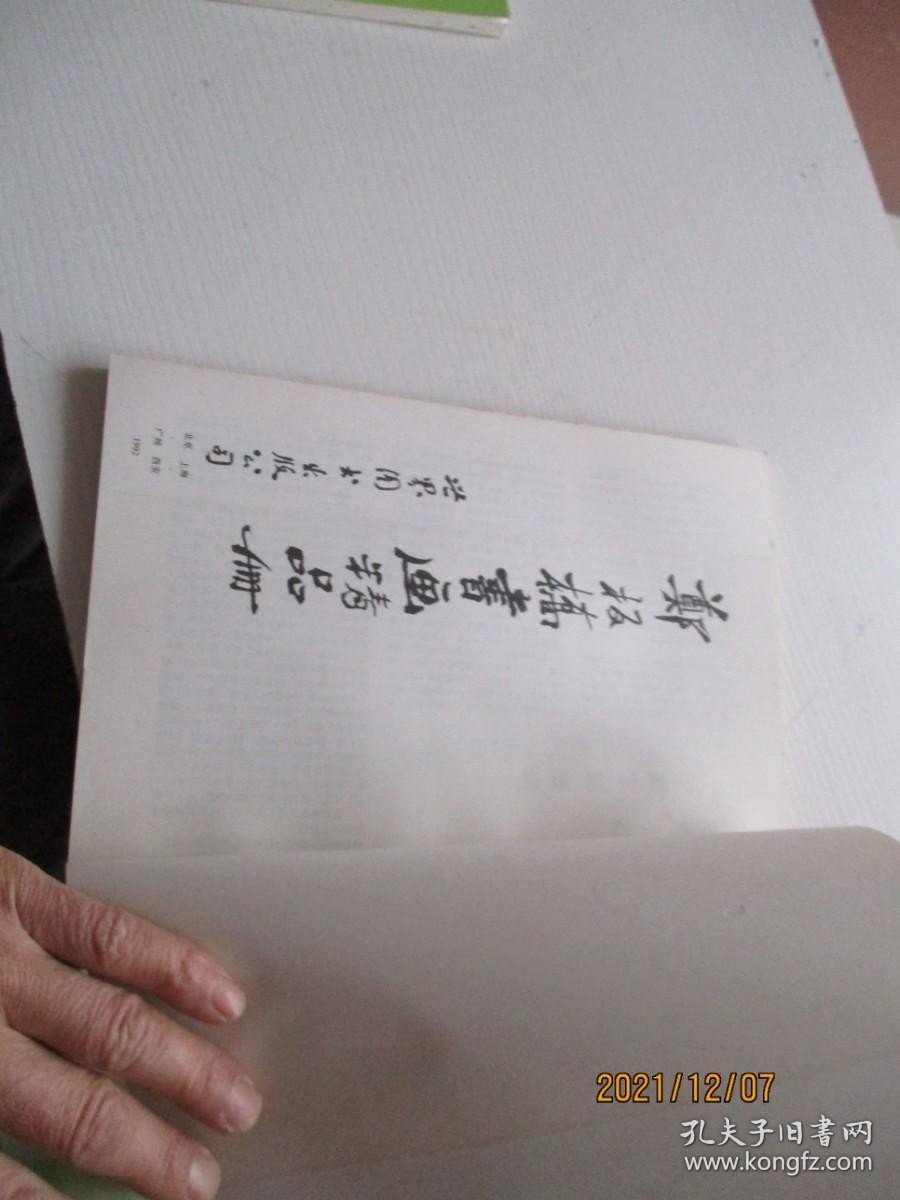 鄭板橋書画精品冊
世界图书出版公司
北京·上海
广州·西安
1992
2021/12/07
孔夫子旧书网
www.kongfz.com